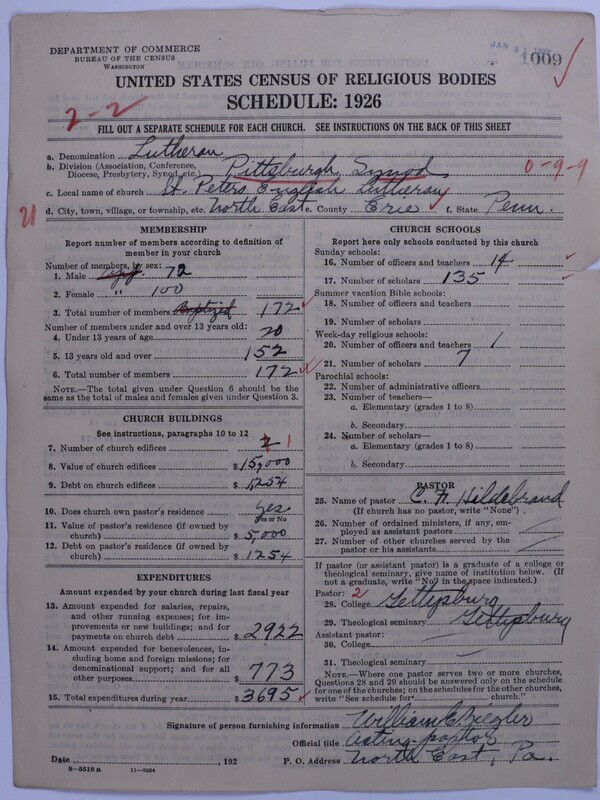 DEPARTMENT OF COMMERCE
BUREAU OF THE CENSUS
WASHINGTON
JAN 3 1927
1009
UNITED STATES CENSUS OF RELIGIOUS BODIES
SCHEDULE: 1926
2-2
FILL OUT A SEPARATE SCHEDULE FOR EACH CHURCH. SEE INSTRUCTIONS ON THE BACK OF THIS SHEET
a. Denomination Lutheran
b. Division (Association, Conference, Diocese, Presbytery, Synod, etc.) Pittsburgh Synod 0-9-9
c. Local name of church St. Peters English Lutheran
21 d. City, town, village, or township, etc. North East e. County Erie f. State Penn.
MEMBERSHIP
Report number of members according to definition of
member in your church
Number of members, by sex:
1. Male 72
2. Female " 100
3. Total number of members Baptized 172
Number of members under and over 13 years old:
4. Under 13 years of age 20
5. 13 years old and over 152
6. Total number of members 172
NOTE.—The total given under Question 6 should be
same as the total of males and females given under Question 3.
CHURCH BUILDINGS
See instructions, paragraphs 10 to 12
7. Number of church edifices 1
8. Value of church edifices $ 15,000
9. Debt on church edifices $ 1,254
10. Does church own pastor's residence yes
Yes or No
11. Value of pastor's residence (if owned by
church) $ 5,000
12. Debt on pastor's residence (if owned by
church) $ 1254
EXPENDITURES
Amount expended by your church during last fiscal year
13. Amount expended for salaries, repairs,
and other running expenses; for im-
provements or new buildings; and for
payments on church debt $ 2922
14. Amount expended for benevolences, in-
cluding home and foreign missions; for
denominational support; and for all
other purposes $ 773
15. Total expenditures during year $ 3695
CHURCH SCHOOLS
Report here only schools conducted by this church
Sunday schools:
16. Number of officers and teachers 14
17. Number of scholars 135
Summer vacation Bible schools:
18. Number of officers and teachers
19. Number of scholars
Week-day religious schools:
20. Number of officers and teachers 1
21. Number of scholars 7
Parochial schools:
22. Number of administrative officers
23. Number of teachers—
a. Elementary (grades 1 to 8)
b. Secondary
24. Number of scholars—
a. Elementary (grades 1 to 8)
b. Secondary
PASTOR
25. Name of pastor C. N. Hildebrand
(If church has no pastor, write "None")
26. Number of ordained ministers, if any, em-
ployed as assistant pastors
27. Number of other churches served by the
pastor or his assistants
If pastor (or assistant pastor) is a graduate of a college or
theological seminary, give name of institution below. (If
not a graduate, write "No" in the space indicated.)
Pastor: 2
28. College Gettysburg
29. Theological seminary Gettysburg
Assistant pastor:
30. College
31. Theological seminary
NOTE.—Where one pastor serves two or more churches,
Questions 28 and 29 should be answered only on the schedule
for one of the churches; on the schedules for the other churches,
write "See schedule for church."
Signature of person furnishing information William C Ziegler
Official title Acting-pastor
Date , 192 P. O. Address North East, Pa.
8—5518 a 11—9064